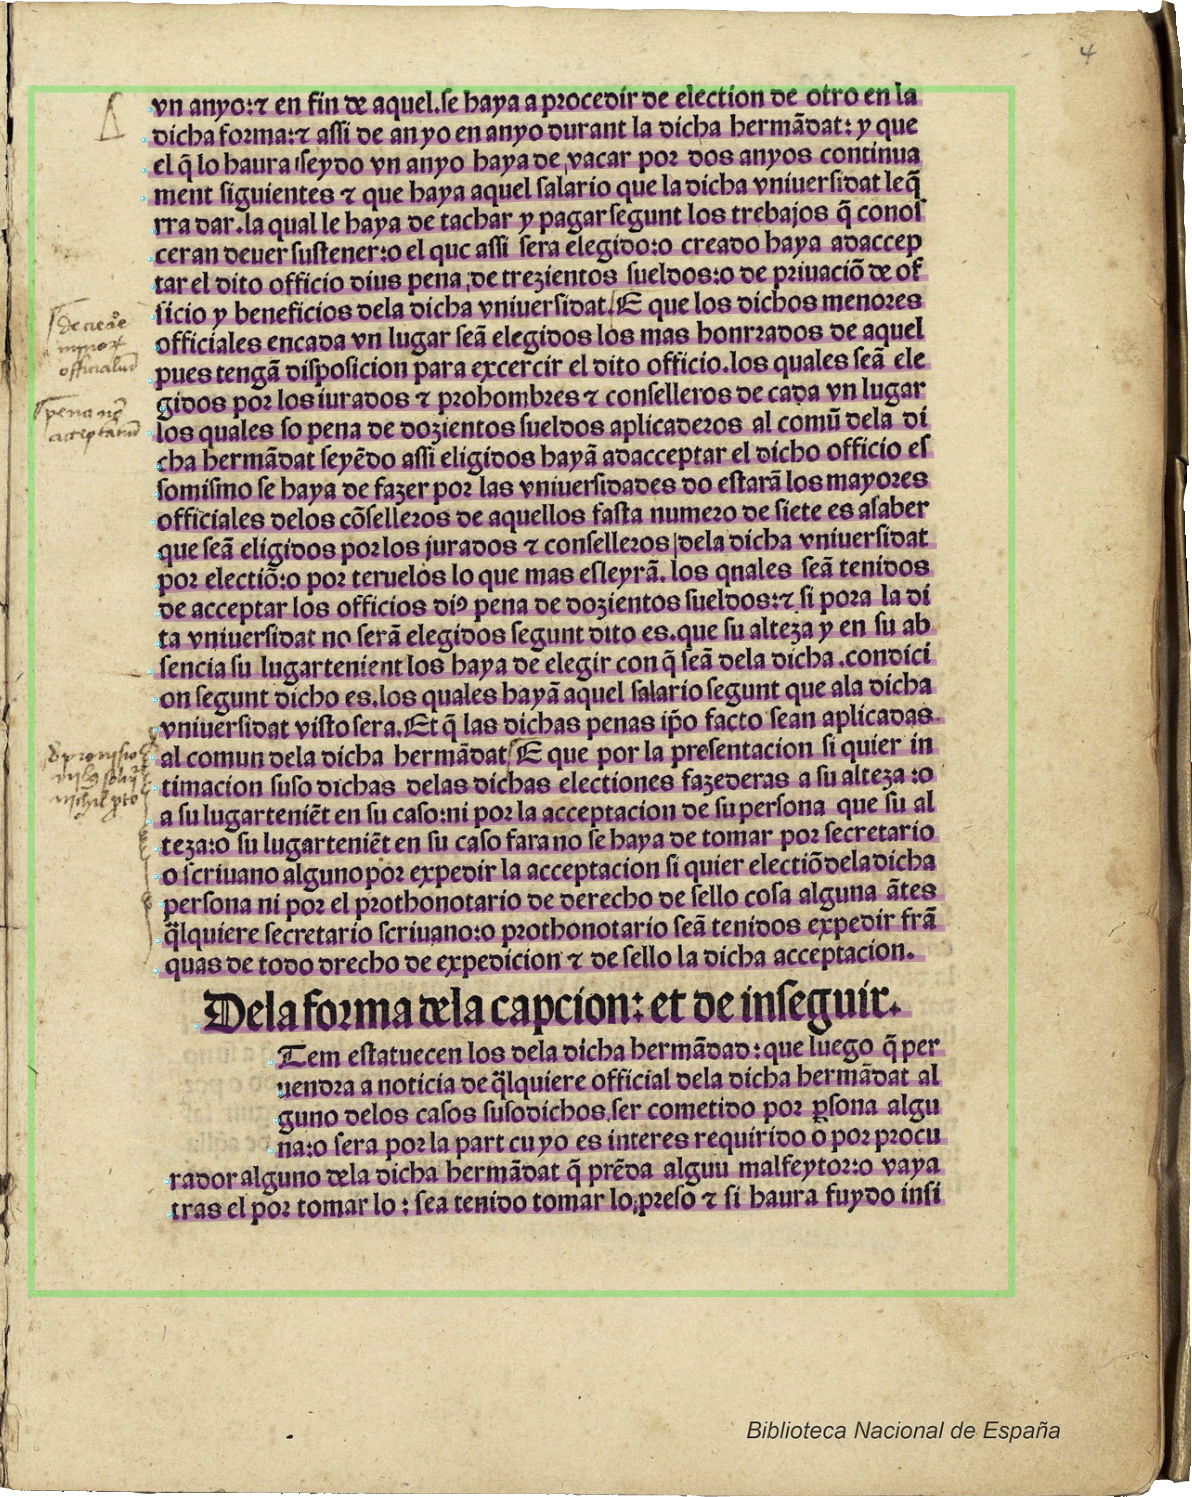 4
vn anyo:⁊ en fin de aquel.se haya a procedir de election de otro en la
dicha forma:⁊ assi de anyo en anyo durant la dicha hermādat: y que
el q̄ lo haura seydo vn anyo haya de vacar por dos anyos continua
ment siguientes ⁊ que haya aquel salario que la dicha vniuersidat leq̄
rra dar.la qual le haya de tachar y pagar segunt los trebajos q̄ conos
ceran deuer sustener:o el que assi sera elegido:o creado haya adaccep
tar el dito officio dius pena de trezientos sueldos:o de priuaciō de of
ficio y beneficios dela dicha vniuersidat. E que los dichos menores
officiales encada vn lugar seā elegidos los mas honrrados de aquel
pues tengā disposicion para excercir el dito officio.los quales seā ele
gidos por los iurados ⁊ prohombres ⁊ conselleros de cada vn lugar
los quales so pena de dozientos sueldos aplicaderos al comū dela di
cha hermādat seyēdo assi eligidos hayā adacceptar el dicho officio es
somismo se haya de fazer por las vniuersidades do estarā los mayores
officiales delos cōselleros de aquellos fasta numero de siete es asaber
que seā eligidos por los jurados ⁊ conselleros dela dicha vniuersidat
por electiō:o por teruelos lo que mas esleyrā. los qnales seā tenidos
de acceptar los officios diꝰ pena de dozientos sueldos:⁊ si pora la di
ta vniuersidat no serā elegidos segunt dito es.que su alteza y en su ab
sencia su lugartenient los haya de elegir con q̄ seā dela dicha .condici
on segunt dicho es.los quales hayā aquel salario segunt que ala dicha
vniuersidat visto sera.Et q̄ las dichas penas ip̄o facto sean aplicadas
al comun dela dicha hermādat E que por la presentacion si quier in
timacion suso dichas delas dichas electiones fazederas a su alteza :o
a su lugarteniēt en su caso:ni por la acceptacion de su persona que su al
teza:o su lugarteniēt en su caso fara no se haya de tomar por secretario
o scriuano alguno por expedir la acceptacion si quier electiō dela dicha
persona ni por el prothonotario de derecho de sello cosa alguna ātes
q̄lquiere secretario scriuano:o prothonotario seā tenidos expedir frā
quas de todo drecho de expedicion ⁊ de sello la dicha acceptacion.
Dela forma dela capcion: et de inseguir.
Tem estatuecen los dela dicha hermādad: que luego q̄ per
uendra a noticia de q̄lquiere official dela dicha hermādat al
guno delos casos susodichos ser cometido por ꝑsona algu
na:o sera por la part cuyo es interes requirido o por procu
rador alguno dela dicha hermādat q̄ prēda alguu malfeytor:o vaya
tras el por tomar lo : sea tenido tomar lo preso ⁊ si haura fuydo insi
Biblioteca Nacional de España